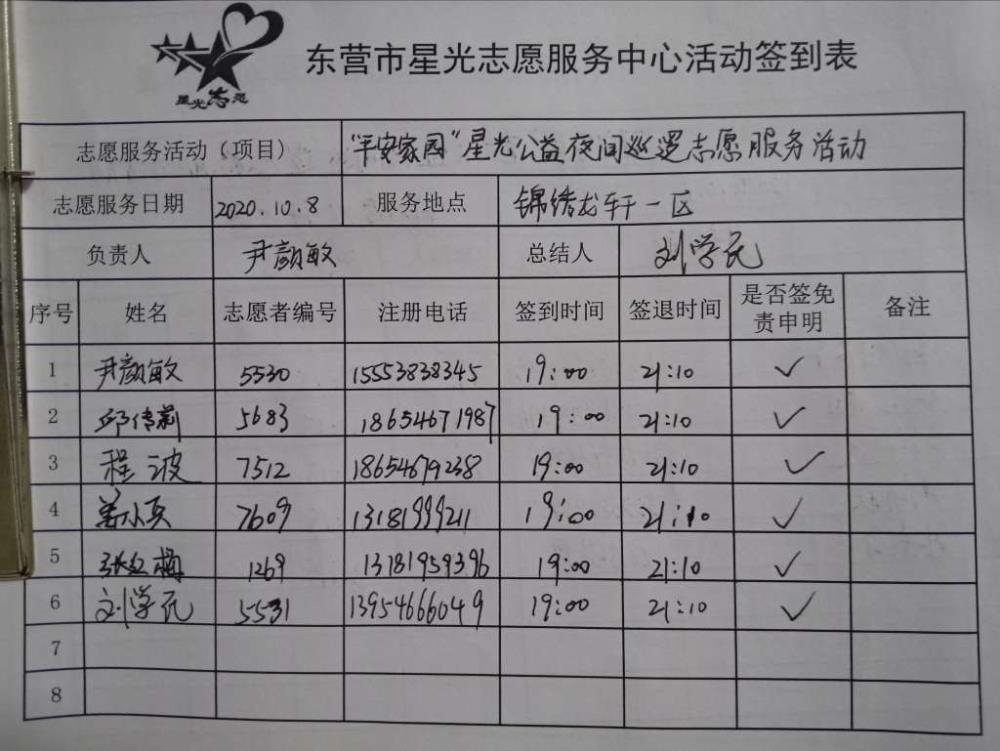 星光志愿
东营市星光志愿服务中心活动签到表
志愿服务活动（项目） "平安家园"星光公益夜间巡逻志愿服务活动
志愿服务日期 2020.10.8 服务地点 锦绣龙轩一区
负责人 尹颜敏 总结人 刘学民
序号 姓名 志愿者编号 注册电话 签到时间 签退时间 是否签免责申明 备注
1 尹颜敏 5530 15553838345 19:00 21:10 ✓
2 邱传莉 5683 18654671987 19:00 21:10 ✓
3 程波 7512 18654679238 19:00 21:10 ✓
4 7609 13181999211 19:00 21:10 ✓
5 张红梅 1269 13781959396 19:00 21:10 ✓
6 刘学民 5531 13954666049 19:00 21:10 ✓
7
8